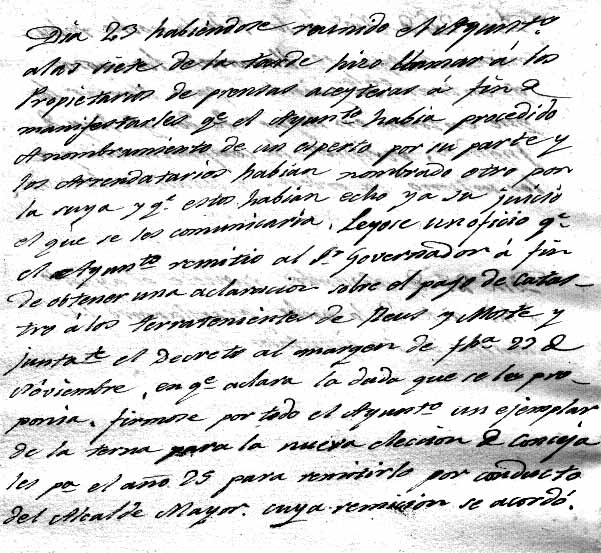 Dia 23 habiendose reunido el Ayunt.º
a las siete de la tarde hizo llamar á los
Propietarios de prensas aceyteras á fin de
manifestarles q.e el Ayunt.º habia procedido
á nombramiento de un esperto por su parte y
los Arrendatarios habian nombrado otro por
la suya y q.e estos habian echo ya su juicio
el que se les comunicaria. Leyose un oficio q.e
el Ayunt.º remitio al S.r Governador á fin
de obtener una aclaracion sobre el pago de Catas-
tro á los terratenientes de Reus y Morte y
junta.te el Decreto al margen de fha 22 de
Noviembre, en q.e aclara la duda que se le pro-
ponia. firmose por todo el Ayunt.º un ejemplar
de la terna para la nueva eleccion de Conceja
les p.a el año 25 para remitirlo por conducto
del Alcalde Mayor. cuya remicion se acordó.